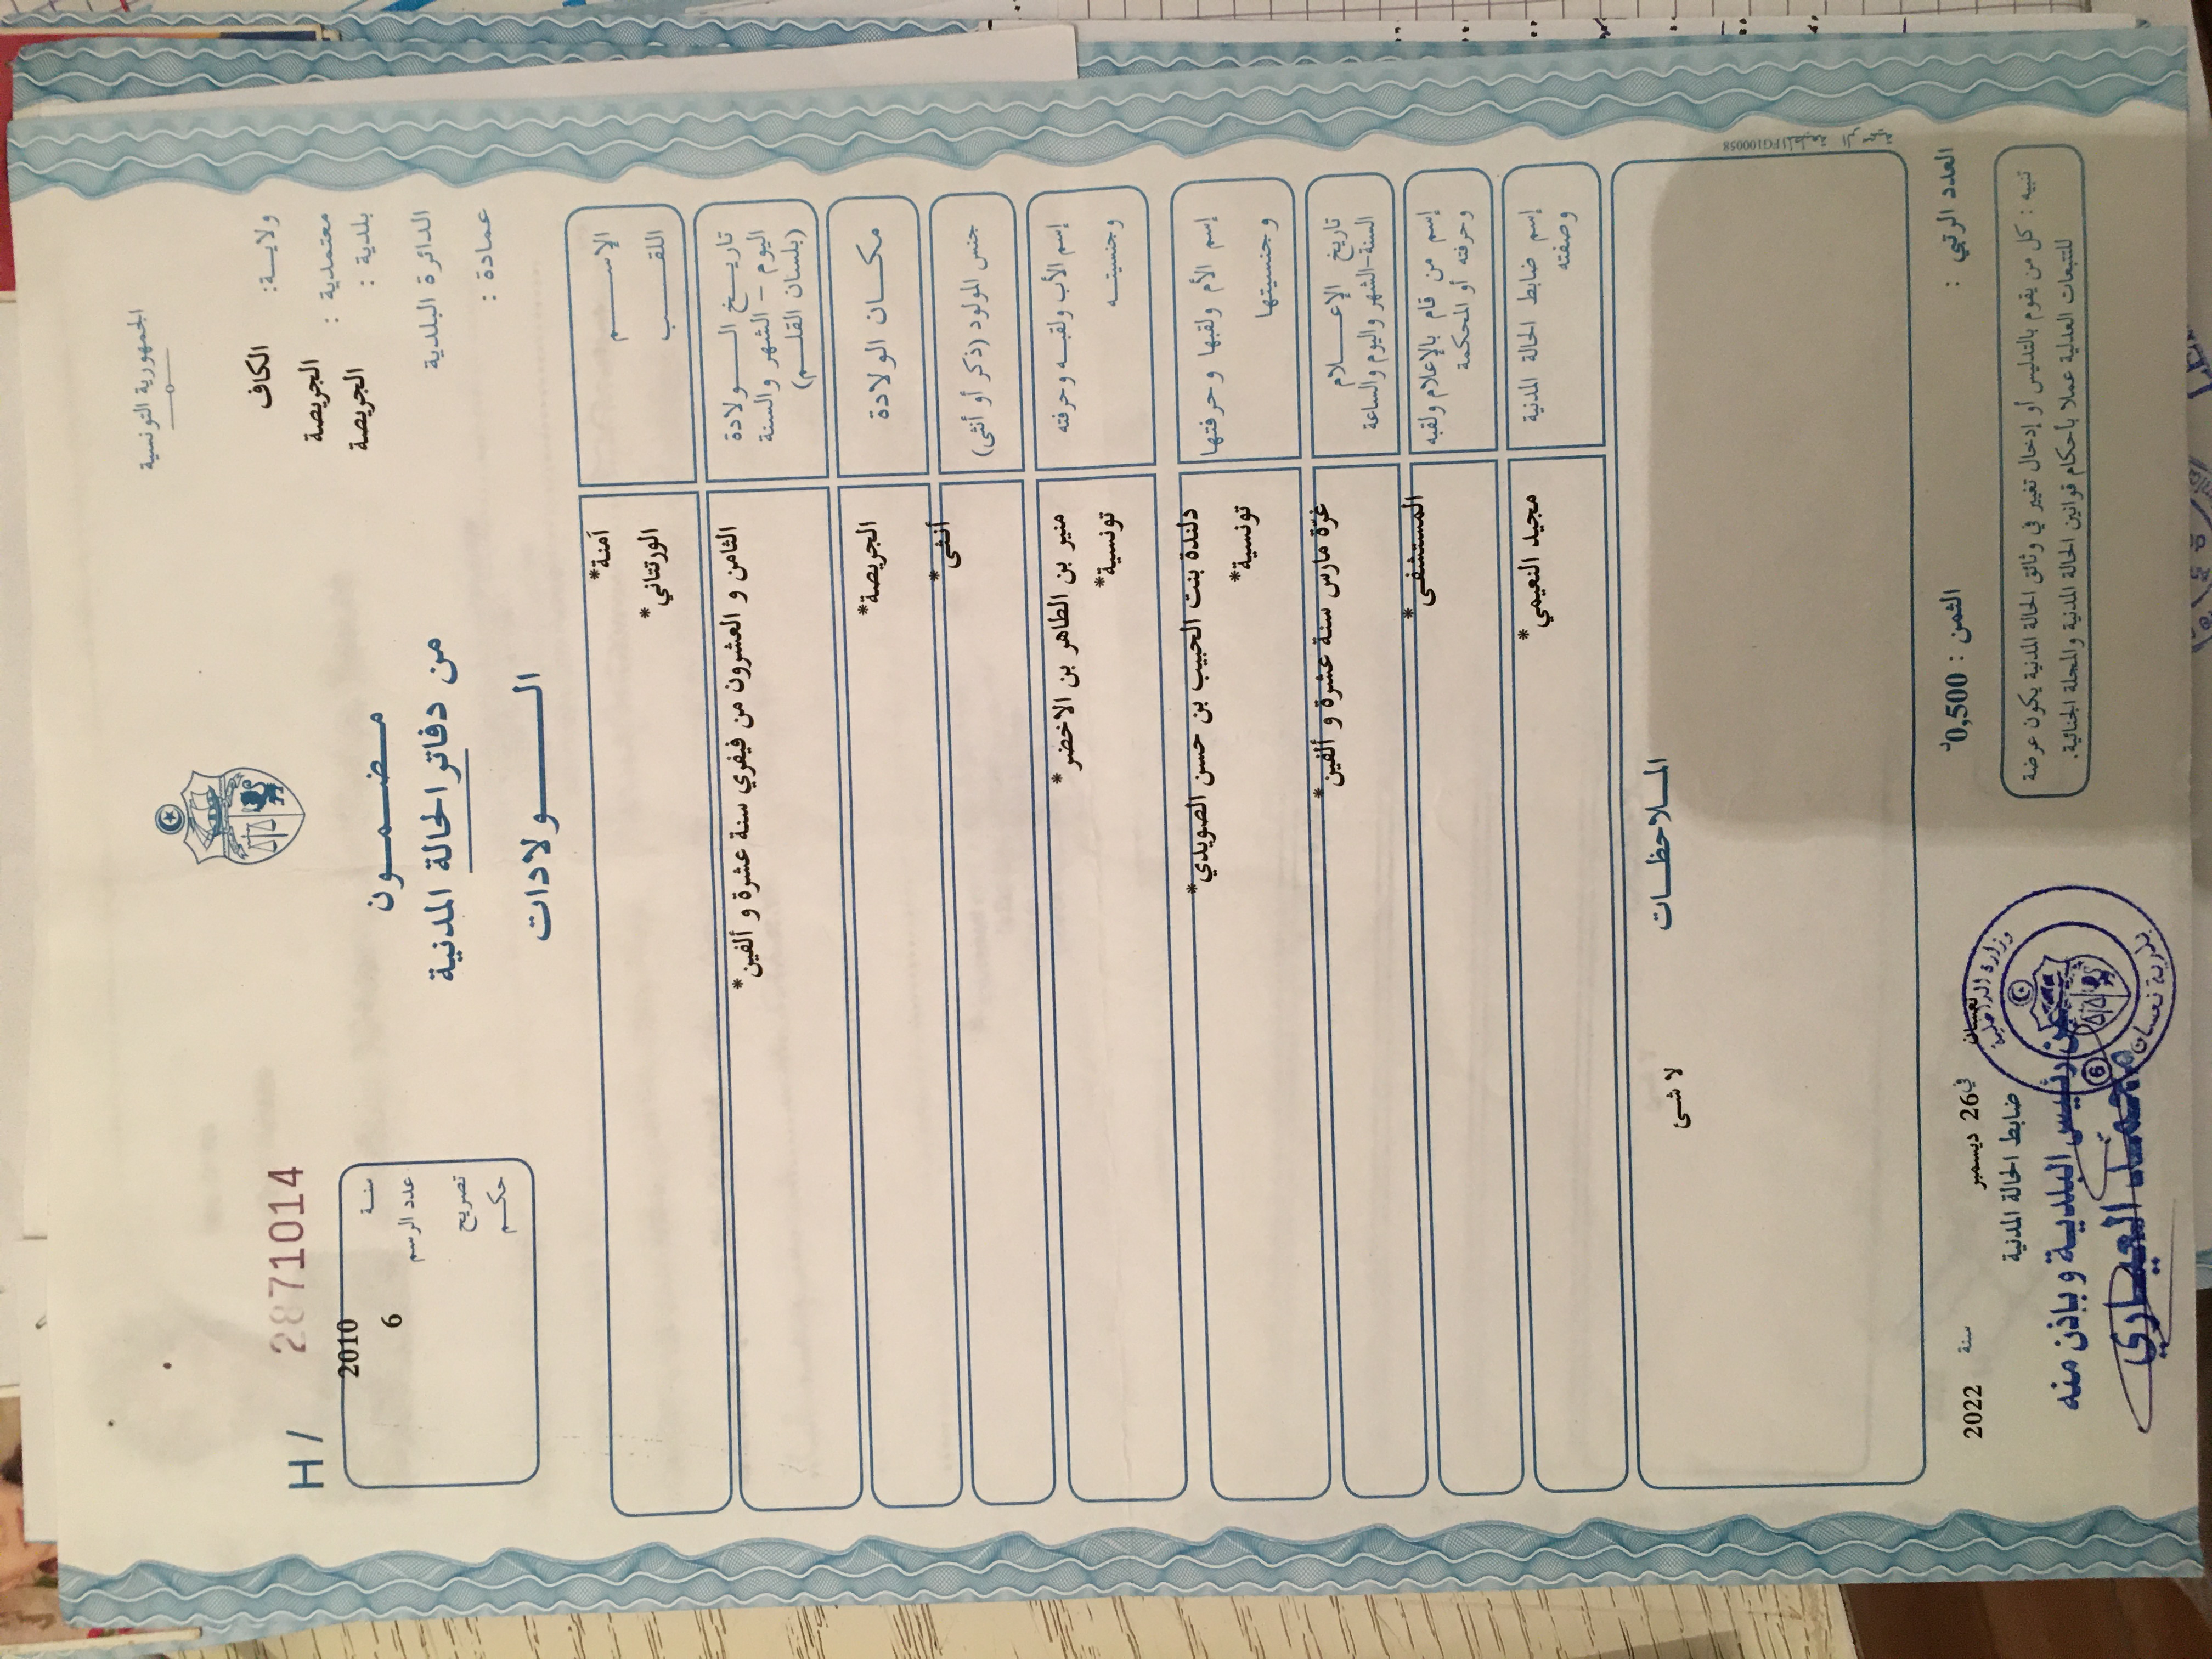 الجمهورية التونسية
ولايـة: الكاف
معتمدية : الجريصة
بلدية : الجريصة
الدائرة البلدية
عمادة :
مضمـــون
من دفاتر الحالة المدنية
الـــــولادات
H/ 2871014
سنـة 2010
عدد الرسم 6
تصريح
حكـم
الإســـم
اللقـــب
*آمنة
*الورتتاني
تاريـــخ الـــولادة
اليوم – الشهر والسنة
(بلسان القلـم)
*الثامن و العشرون من فيفري سنة عشرة و ألفين
مكـــان الولادة
*الجريصة
جنس المولود (ذكر أو أنثى)
*أنثى
إسم الأب ولقبـه وحرفته
وجنسيتـه
*منير بن الطاهر بن الاخضر
*تونسية
إسم الأم ولقبها وحرفتها
وجنسيتها
*دلندة بنت الحبيب بن حسن الصويدي
*تونسية
تاريخ الإعـــلام
السنة-الشهر واليوم والساعة
*غرّة مارس سنة عشرة و ألفين
إسم من قام بالإعلام ولقبه
وحرفته أو المحكمة
*المستشفى
إسم ضابط الحالة المدنية
وصفته
*مجيد النعيمي
المـلاحظـــات
لا شئ
العدد الرتبي :
الثمن : 0,500د
نعسان في 26 ديسمبر سنة 2022
ضابط الحالة المدنية
عن رئيس البلدية و بإذن منه
محمد العيـاري
وزارة الداخلية
بلدية نعسان
6
تنبيه : كل من يقوم بالتدليس أو إدخال تغيير في وثائق الحالة المدنية يكون عرضة
للتتبعات العدلية عملا بأحكام قوانين الحالة المدنية والمجلة الجنائية.